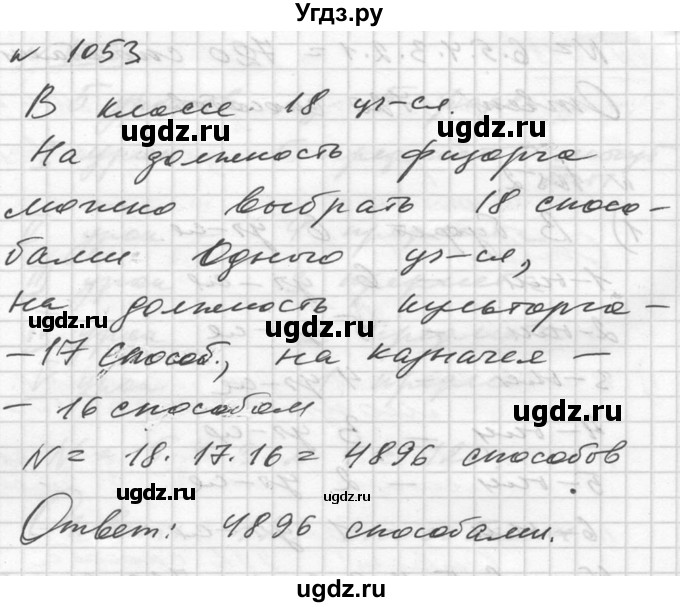 Угдз.ру
№ 1053
В классе 18 уч-ся.
На должность физорга
можно выбрать 18 спосо-
бами одного уч-ся,
на должность культорга -
- 17 способ., на казначея -
- 16 способам
N = 18 · 17 · 16 = 4896 способов
Ответ: 4896 способами.
ugdz.ru
ugdz.ru
ugdz.ru
ugdz.ru
ugdz.ru
ugdz.ru
ugdz.ru
ugdz.ru
ugdz.ru
ugdz.ru